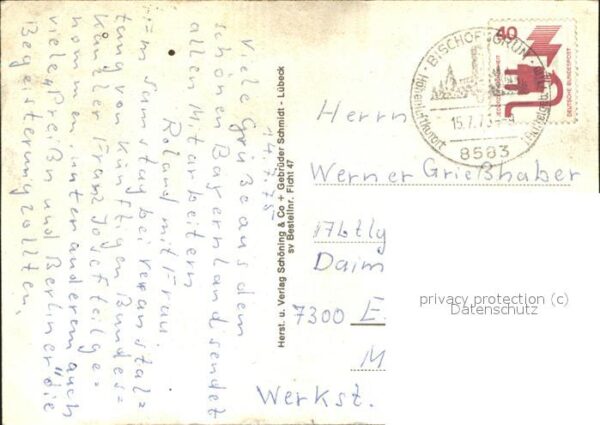 14.7.75
Viele Grüße aus dem
schönen Bayernland sendet
allen Mitarbeitern
Roland mit Frau
Am Samstag bei Veranstal=
tung von künftigen Bundes=
kanzler Franz Josef teilge=
nommen, unter anderem auch
viele „Preißn und Berliner" die
Begeisterung zollten.
Herst. u. Verlag Schöning & Co + Gebrüder Schmidt - Lübeck
sv Bestellnr. Ficht 47
BISCHOFSGRÜN
Höhenluftkurort
15.7.75
8583
40
DEUTSCHE BUNDESPOST
Herrn
Werner Grießhaber
Daim
7300 E
M
Werkst.
privacy protection (c)
Datenschutz